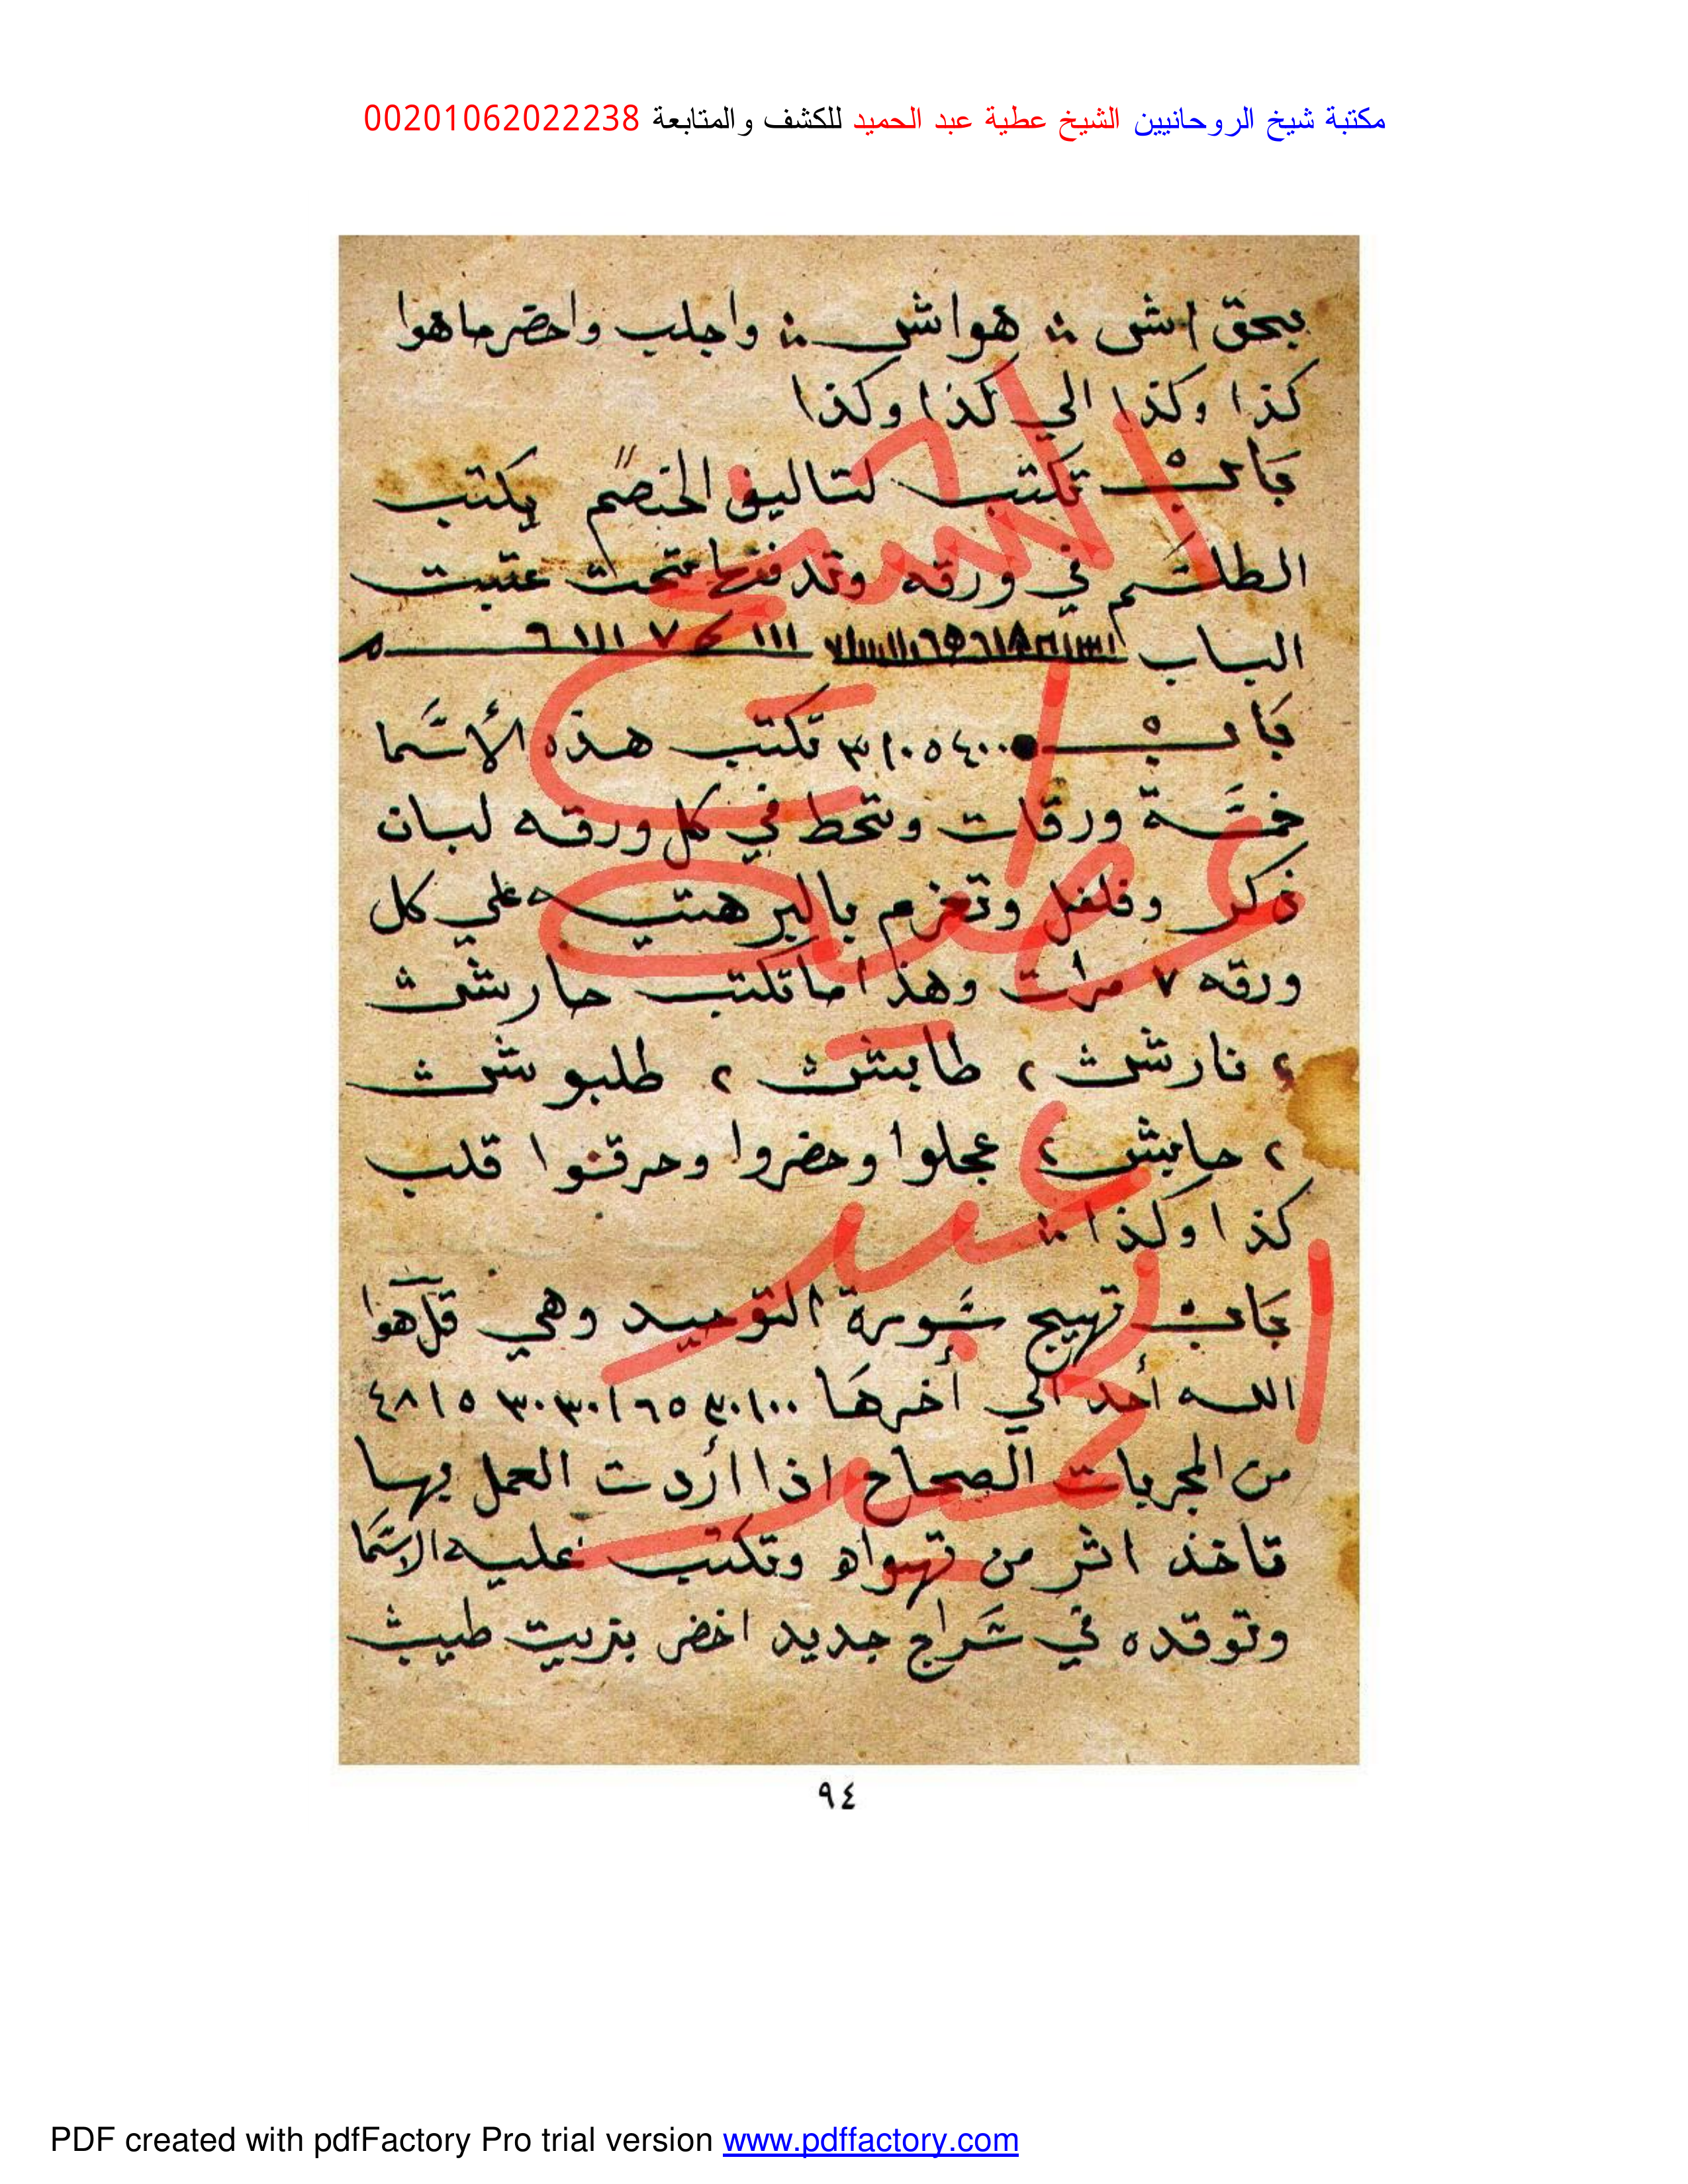 مكتبة شيخ الروحانيين الشيخ عطية عبد الحميد للكشف والمتابعة 00201062022238
بحق اش هواش واجلب واحضر ماهوا
كذا وكذا الي كذا وكذا
باب تكتب لتاليف الخصم يكتب
الطلسم في ورقه وتدفنها تحت عتبت
الباب
باب ٣١٠٥٤٠٠ تكتب هذه الأسما
خمسة ورقات وتحط في كل ورقه لبان
ذكر وفلفل وتعزم بالبرهتيه علي كل
ورقه ٧ مرات وهذا ما تكتب حارشث
، نارشث ، طابشث ، طلبوشث
، حابش ، عجلوا وحضروا وحرقنوا قلب
كذا وكذا
باب تهيج سورة التوحيد وهي قل هوا
الله أحد الي أخرها
من المجربات الصحاح اذا اردت العمل بها
تاخذ اثر من تهواه وتكتب عليه الاسما
وتوقده في سراج جديد اخضر بزيت طيب
الشيخ
عطيه
عبد
الحميد
٩٤
PDF created with pdfFactory Pro trial version www.pdffactory.com